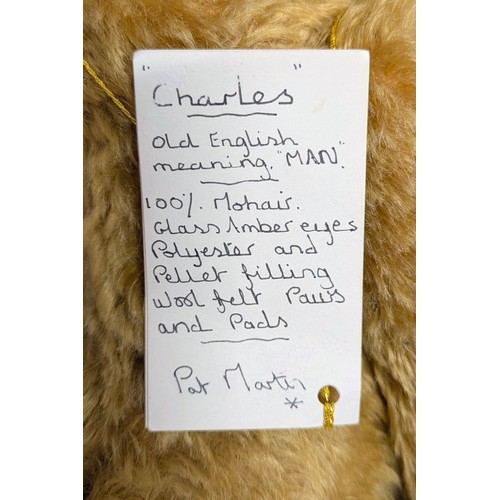 "Charles"
Old English
meaning. "MAN".
100% Mohair.
Glass Amber eyes
Polyester and
Pellet filling
Wool felt Paws
and Pads
Pat Martin
*